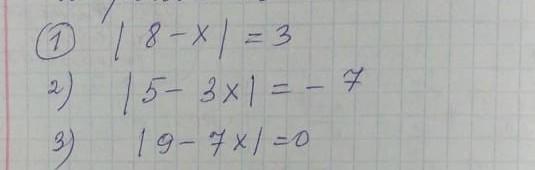 ① |8-x|=3
2) |5-3x|=-7
3) |9-7x|=0